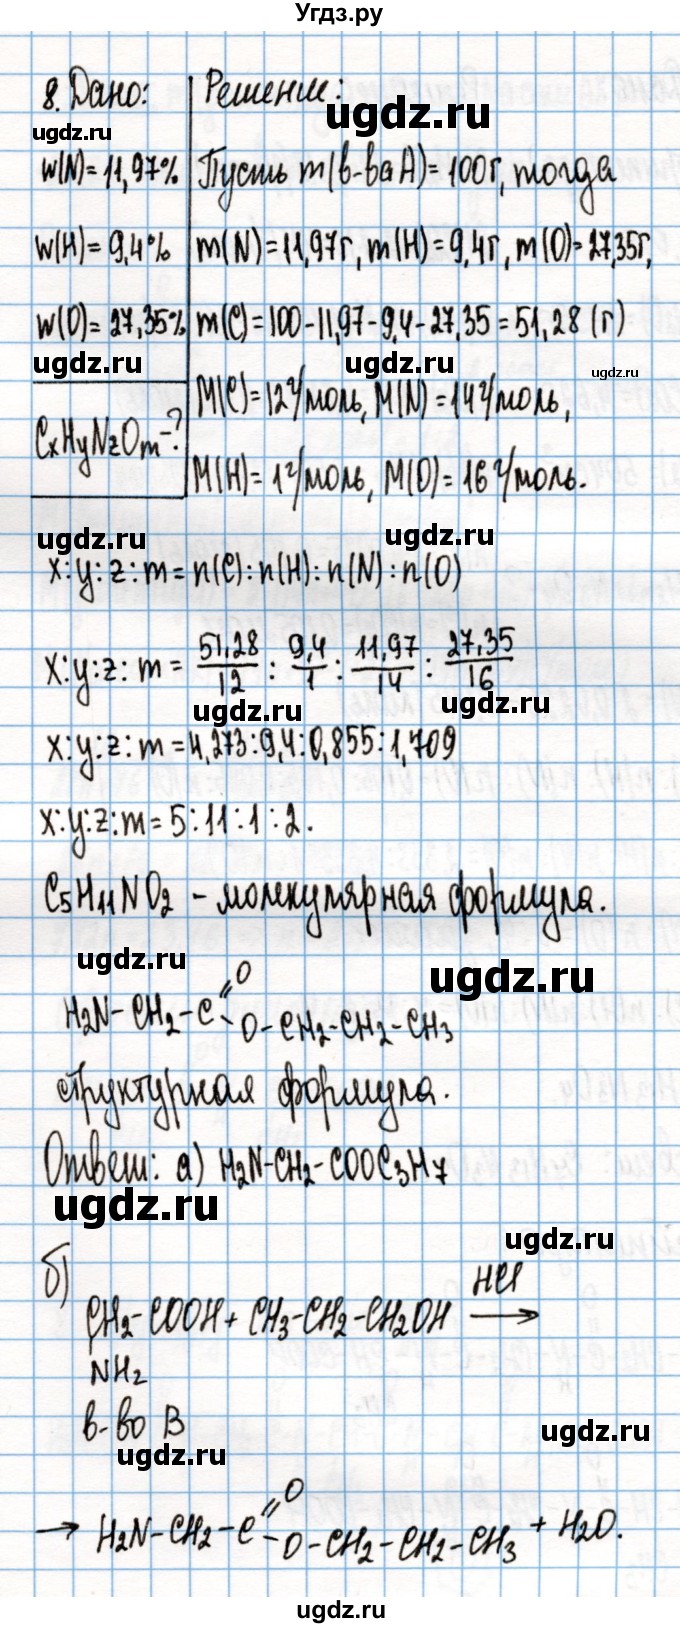 Угдз.ру
8. Дано: Решение:
ugdz.ru
ugdz.ru
w(N) = 11,97% Пусть m(в-ва А) = 100г, тогда
w(H) = 9,4% m(N) = 11,97г, m(H) = 9,4г, m(O) = 27,35г,
w(O) = 27,35% m(C) = 100-11,97-9,4-27,35 = 51,28 (г)
ugdz.ru ugdz.ru ugdz.ru
CxHyNzOm-? M(C) = 12 г/моль, M(N) = 14 г/моль,
M(H) = 1 г/моль, M(O) = 16 г/моль.
ugdz.ru ugdz.ru
x:y:z:m = n(C):n(H):n(N):n(O)
x:y:z:m = 51,28/12 : 9,4/1 : 11,97/14 : 27,35/16
ugdz.ru ugdz.ru
x:y:z:m = 4,273:9,4:0,855:1,709
x:y:z:m = 5:11:1:2.
C5H11NO2 - молекулярная формула.
ugdz.ru ugdz.ru
H2N-CH2-C=O
O-CH2-CH2-CH3
структурная формула.
Ответ: а) H2N-CH2-COOC3H7
ugdz.ru
ugdz.ru
б)
CH2-COOH + CH3-CH2-CH2OH HCl →
NH2
в-во В
ugdz.ru ugdz.ru
→ H2N-CH2-C=O
-O-CH2-CH2-CH3 + H2O.
ugdz.ru